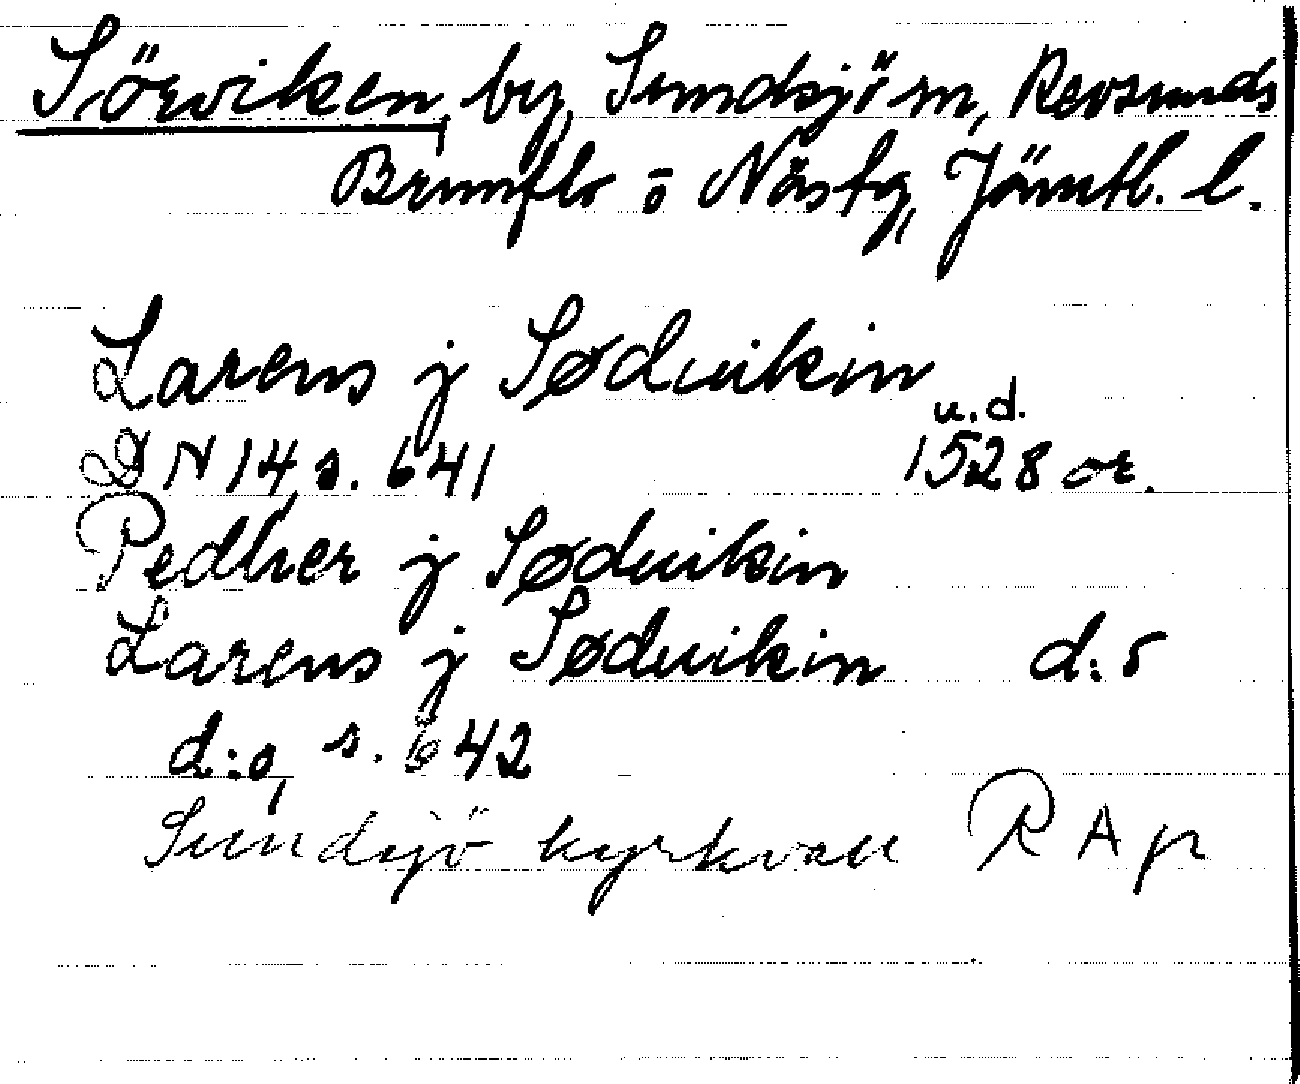 Sörviken, by, Sundsjö sn, Revsunds
Brunflo o Näs tg, Jämtl. l.
Larens j Sødvikin
u.d.
DN 14, s. 641 1528 or.
Pedher j Sødvikin
Larens j Sødvikin d:o
d:o, s. 642
Sundsjö kyrkvall RAp